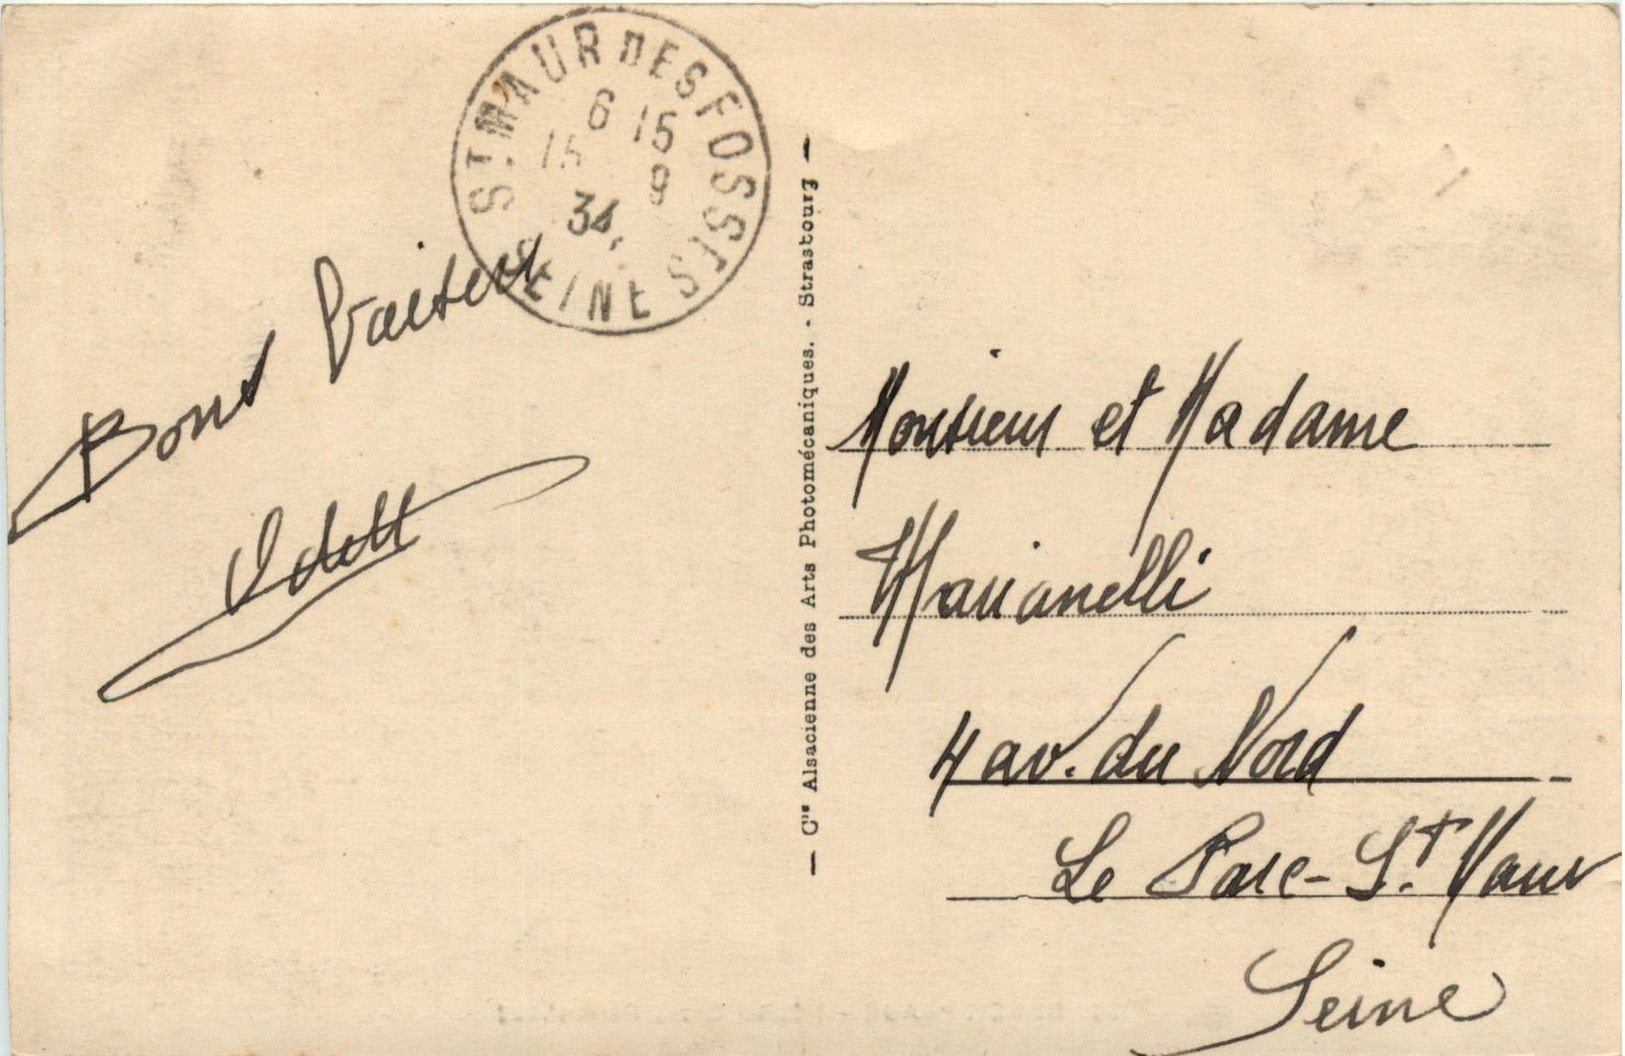 ST MAUR DES FOSSES
6 15
15 8
34
SEINE
Bons Baisers
Odette
— Cie Alsacienne des Arts Photomécaniques. - Strasbourg —
Monsieur et Madame
Marianelli
4 av. du Nord
Le Parc - St. Maur
Seine